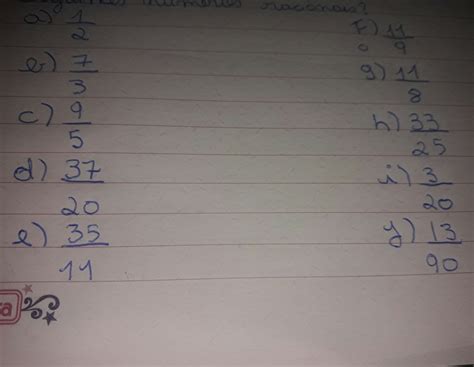 números racionais?
a) 1/2
b) 7/3
c) 9/5
d) 37/20
e) 35/11
f) 11/9
g) 11/8
h) 33/25
i) 3/20
j) 13/90